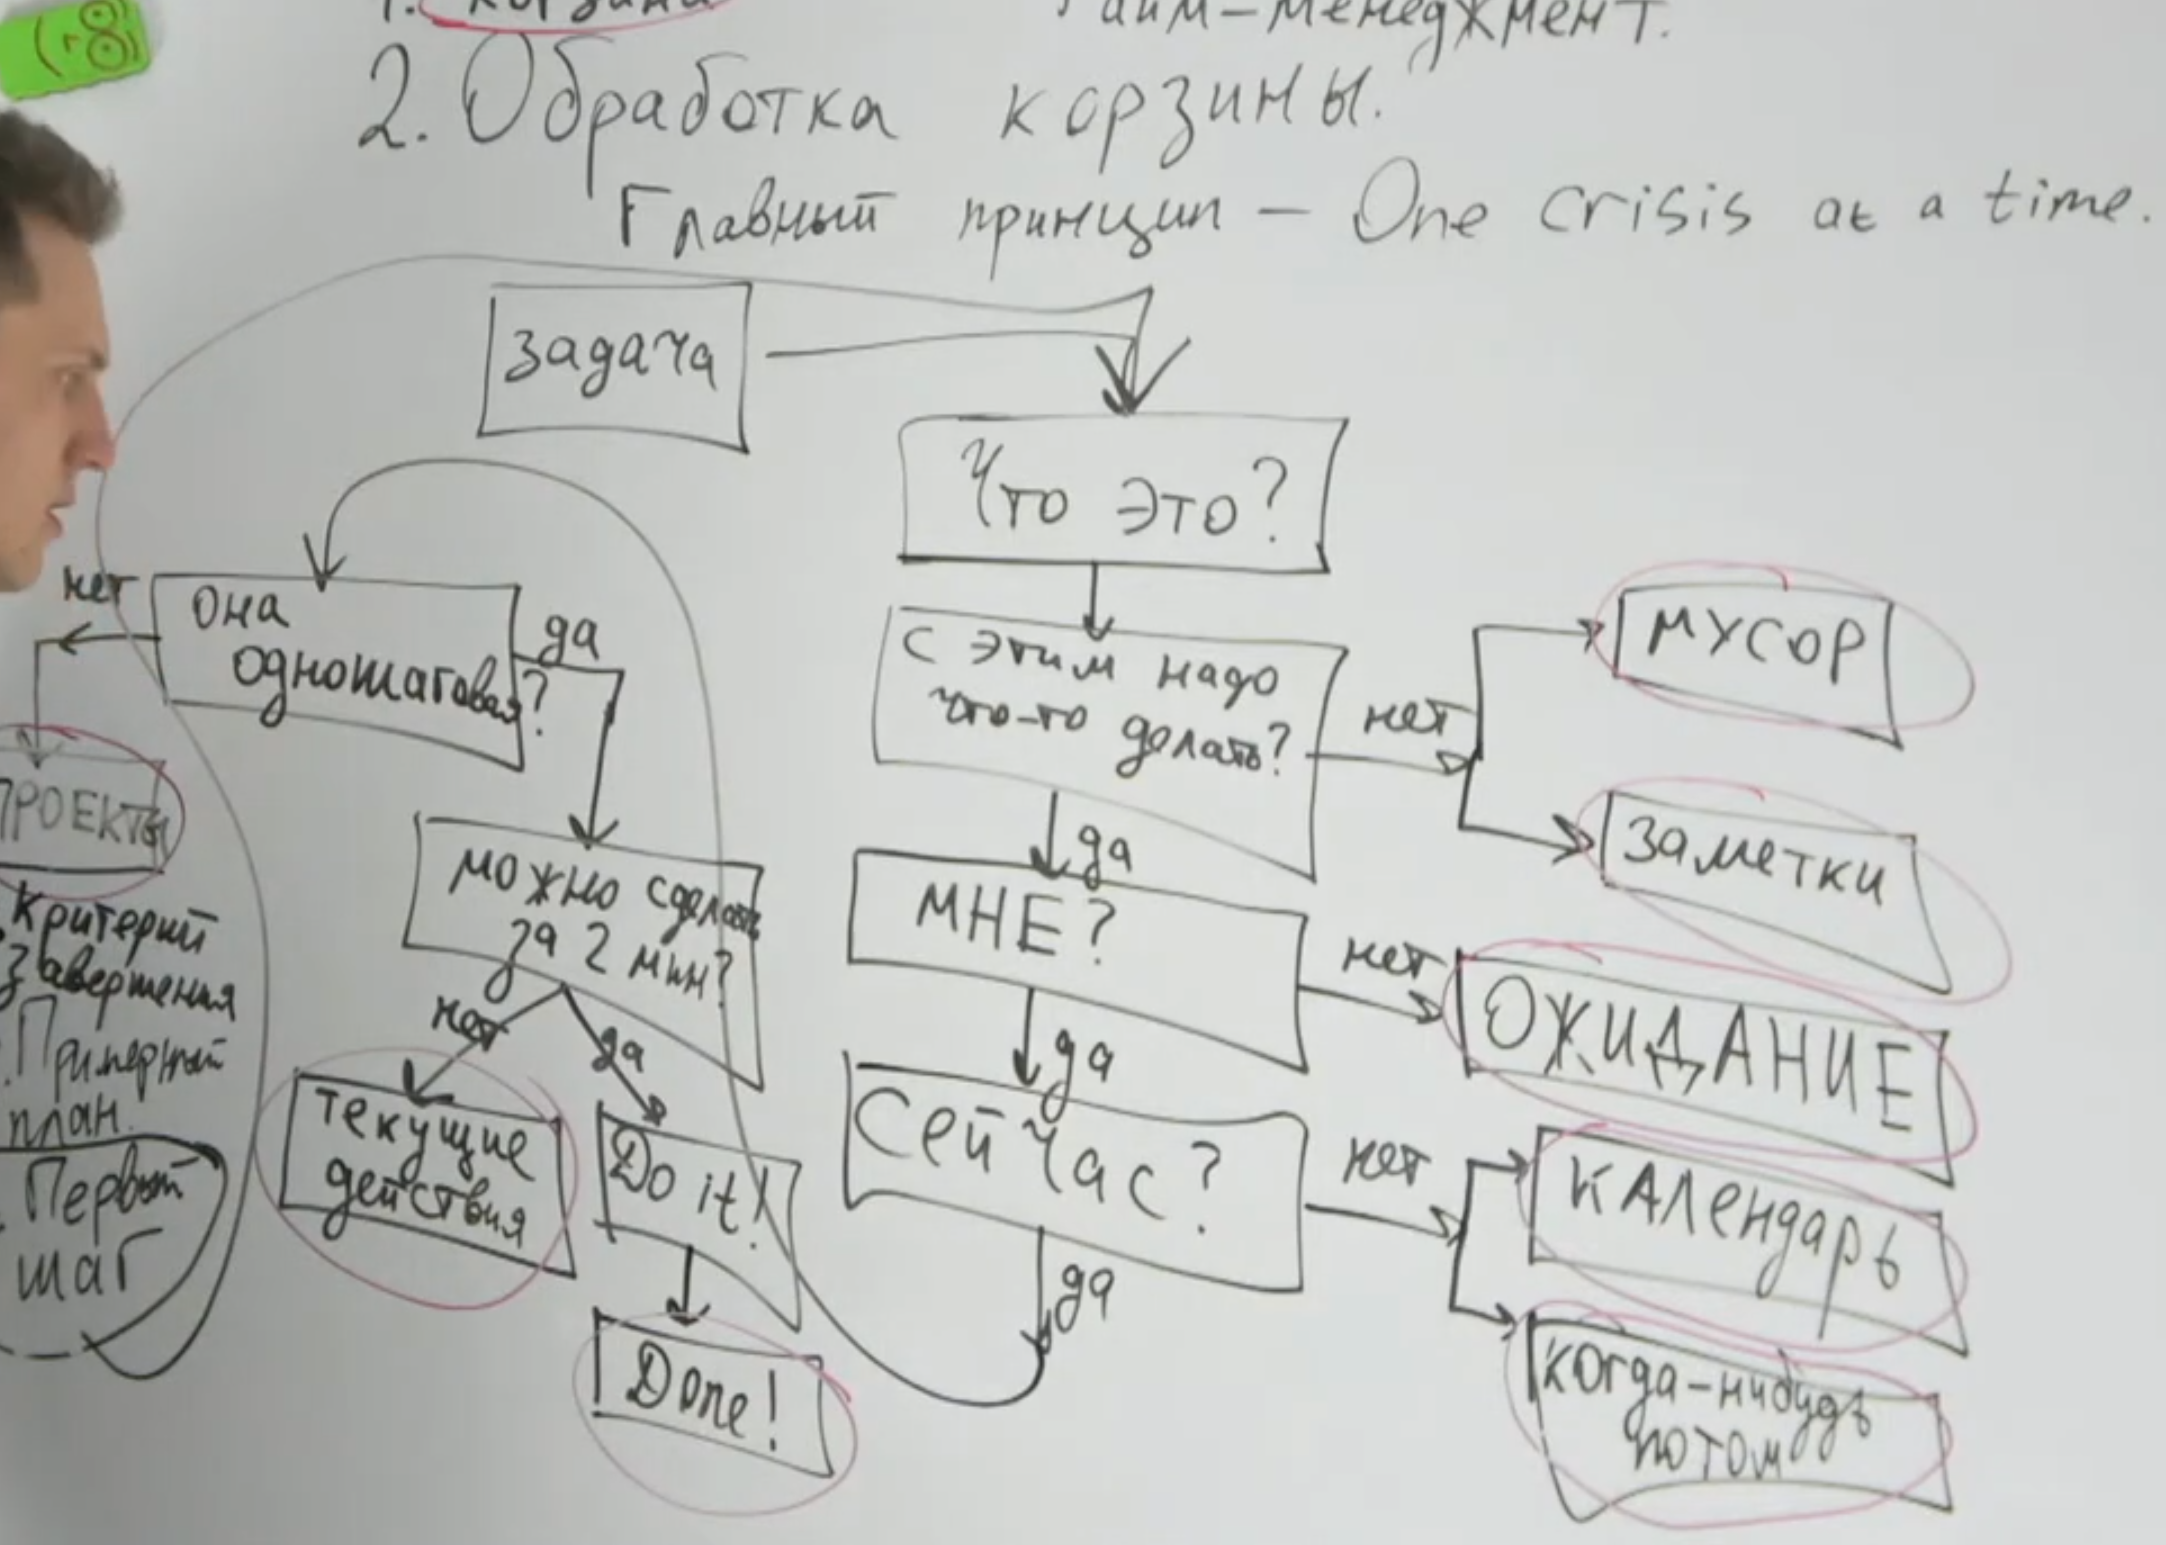 1. корзина
Тайм-менеджмент.
2. Обработка корзины.
Главный принцип — One crisis at a time.
задача
Что это?
с этим надо
что-то делать?
нет
мусор
заметки
да
МНЕ?
нет
ОЖИДАНИЕ
да
Сейчас?
нет
календарь
когда-нибудь
потом
да
она
одношаговая?
нет
да
ПРОЕКТЫ
Критерий
завершения
Примерный
план.
Первый
шаг
можно сделать
за 2 мин?
нет
да
текущие
действия
Do it!
Done!